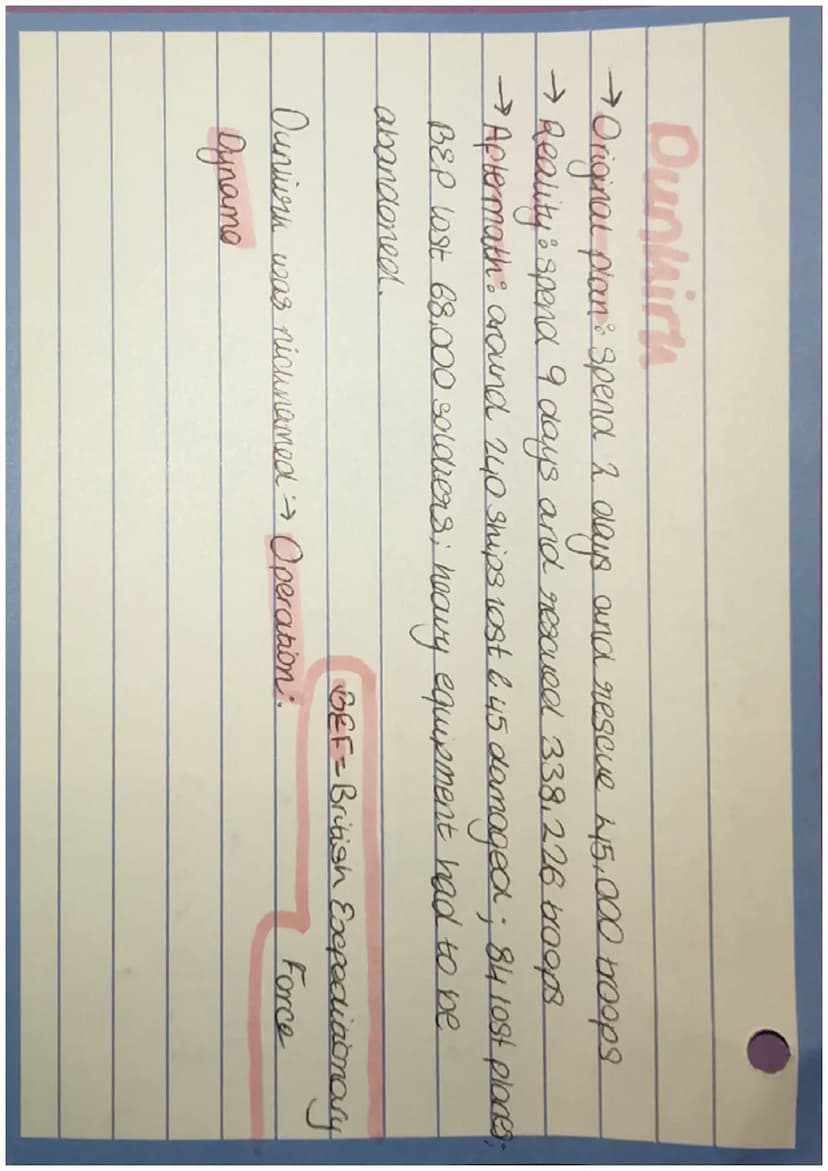 Dunkirk
→ Original plan: spend 2 days and rescue 45,000 troops
→ Reality: spend 9 days and rescued 338,226 troops
→ Aftermath: around 240 ships lost & 45 damaged; 84 lost planes;
BEF lost 68,000 soldiers; heavy equipment had to be
abandoned.
BEF = British Expeditionary
Force
Dunkirk was nicknamed → Operation:
Dynamo